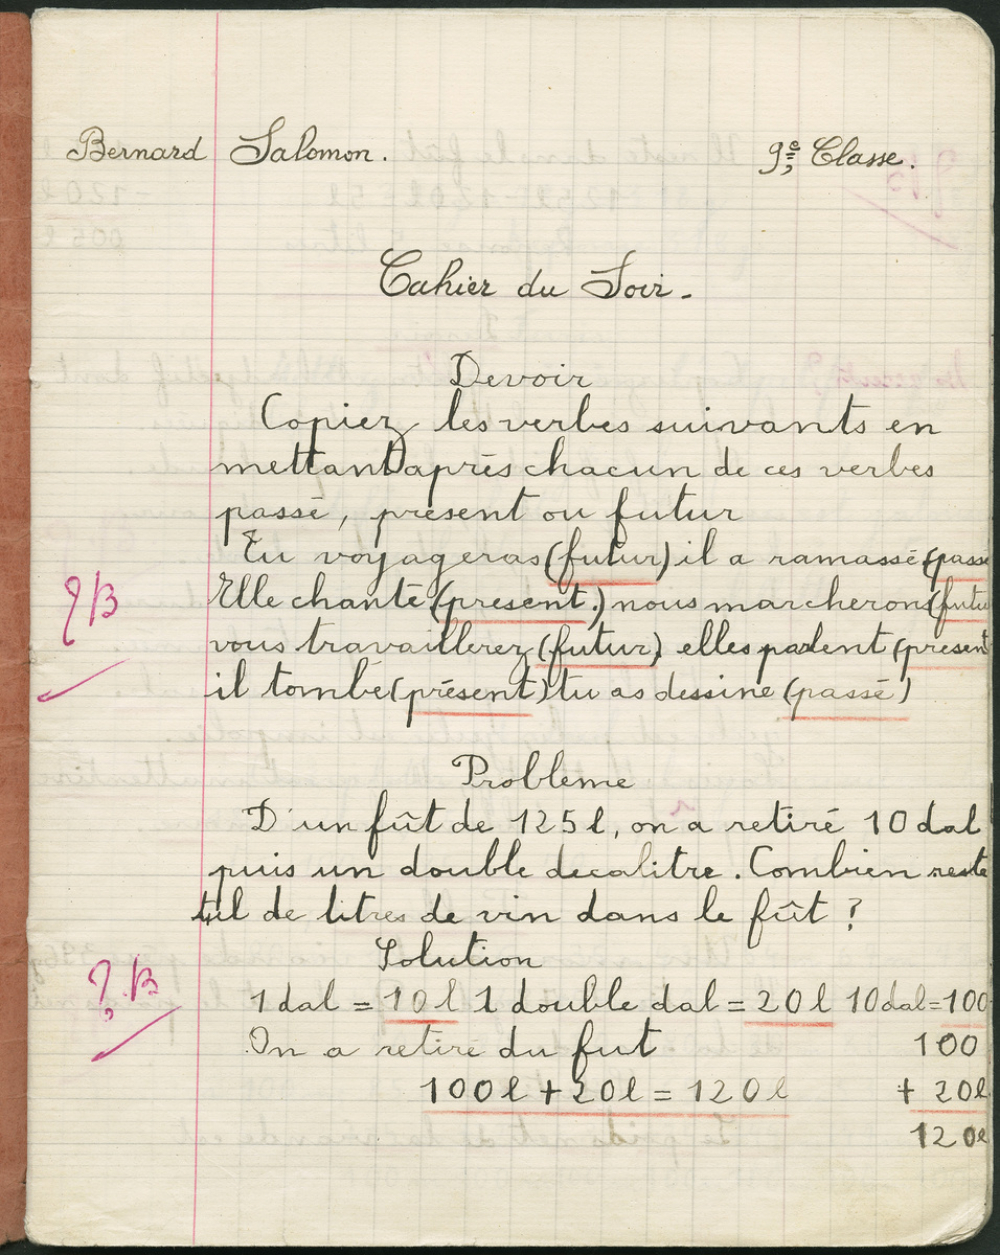 Bernard Salomon. 9e Classe.
Cahier du Soir.
Devoir
Copiez les verbes suivants en
mettant après chacun de ces verbes
passé, présent ou futur
Tu voyageras (futur) il a ramassé (passé
Elle chante (présent.) nous marcherons (futu
vous travaillerez (futur) elles parlent (présent
il tombe (présent) tu as dessiné (passé)
Problème
D'un fût de 125 l, on a retiré 10 dal
puis un double decalitre. Combien reste
til de litres de vin dans le fût ?
Solution
1 dal = 10 l 1 double dal = 20 l 10 dal = 100
On a retiré du fut 100
100 l + 20 l = 120 l + 20 l
120 l